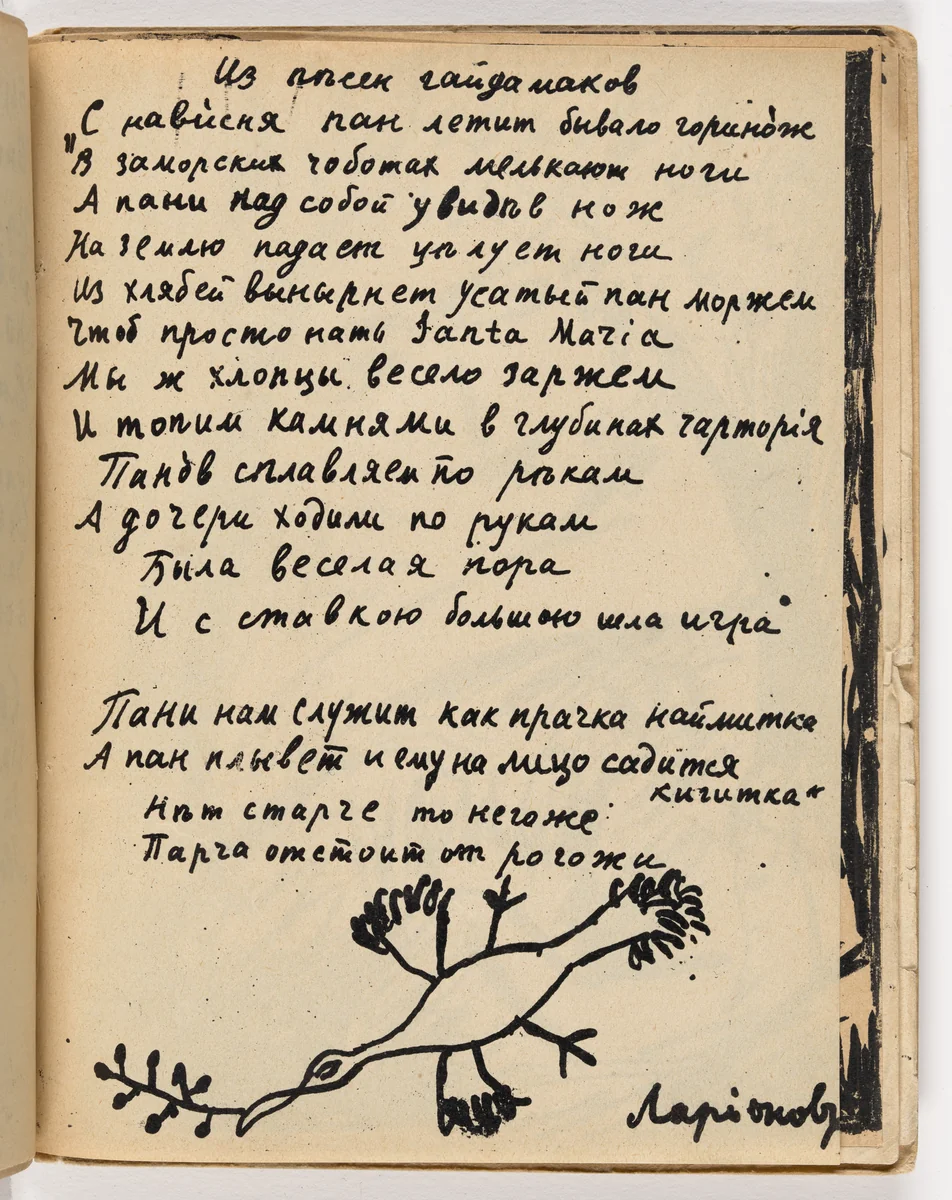 Из пѣсен гайдамаков
„С нависня пан летит бывало горинож
В заморских чоботах мелькают ноги
А пани над собой увидѣв нож
На землю падает цѣлует ноги
Из хлябей вынырнет усатый пан моржем
Чтоб простонать Santa Maria
Мы ж хлопцы весело заржем
И топим камнями в глубинах чарторія
Панов сплавляем по рѣкам
А дочери ходили по рукам
Была веселая пора
И с ставкою большою шла игра
Пани нам служит как прачка наймитка
А пан плывет и ему на лицо садится
кигитка“
Нѣт старче то негоже
Парча отстоит от рогожи
Ларіонов